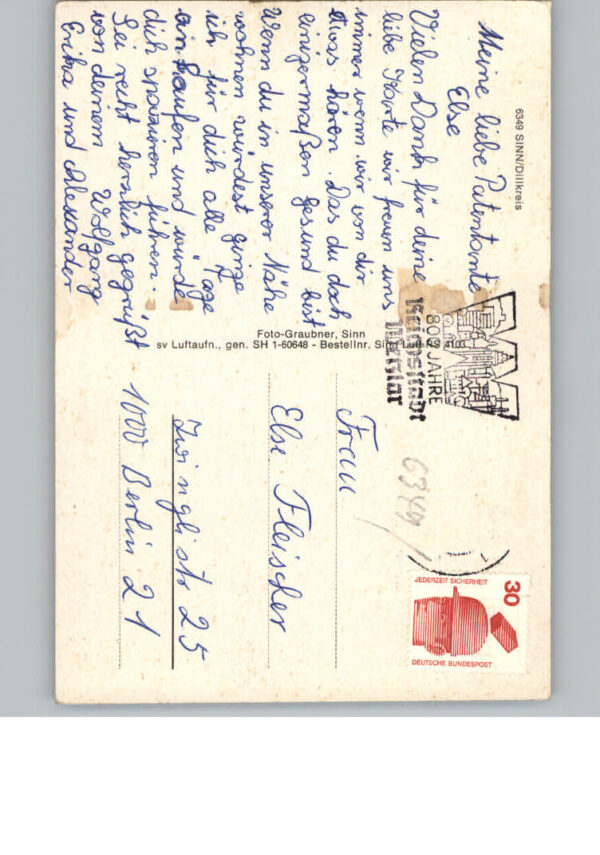 6349 SINN/Dillkreis
Meine liebe Patentante
Else
Vielen Dank für deine
liebe Karte wir freuen uns
immer wenn wir von dir
etwas hören. Das du doch
einigermaßen gesund bist
Wenn du in unserer Nähe
wohnen würdest ginge
ich für dich alle Tage
einkaufen und würde
dich spazieren führen.
Sei recht herzlich gegrüßt
von deinem Wolfgang
Erika und Alexander
Foto-Graubner, Sinn
sv Luftaufn., gen. SH 1-60648 - Bestellnr. Sinn
4103
800 JAHRE
Reichsstadt
Wetzlar
6349
30
JEDERZEIT SICHERHEIT
DEUTSCHE BUNDESPOST
Frau
Else Fleischer
Zwinglistr 25
1000 Berlin 21